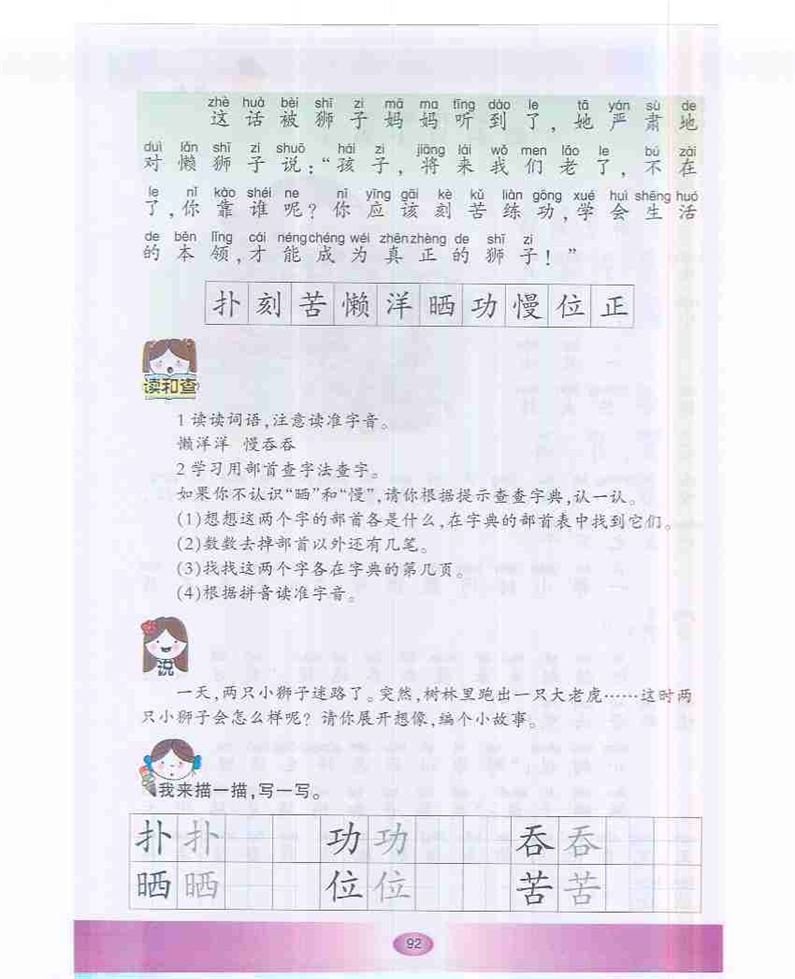 zhè huà bèi shī zi mā ma tīng dào le tā yán sù de
这话被狮子妈妈听到了,她严肃地
duì lǎn shī zi shuō hái zi jiāng lái wǒ men lǎo le bú zài
对懒狮子说:“孩子,将来我们老了,不在
le nǐ kào shéi ne nǐ yīng gāi kè kǔ liàn gōng xué huì shēng huó
了,你靠谁呢?你应该刻苦练功,学会生活
de běn lǐng cái néng chéng wéi zhēn zhèng de shī zi
的本领,才能成为真正的狮子!”
扑刻苦懒洋晒功慢位正
读和查
1 读读词语,注意读准字音。
懒洋洋 慢吞吞
2 学习用部首查字法查字。
如果你不认识“晒”和“慢”,请你根据提示查查字典,认一认。
(1)想想这两个字的部首各是什么,在字典的部首表中找到它们。
(2)数数去掉部首以外还有几笔。
(3)找找这两个字各在字典的第几页。
(4)根据拼音读准字音。
说
一天,两只小狮子迷路了。突然,树林里跑出一只大老虎……这时两
只小狮子会怎么样呢?请你展开想像,编个小故事。
我来描一描,写一写。
扑扑 功功 吞吞
晒晒 位位 苦苦
92